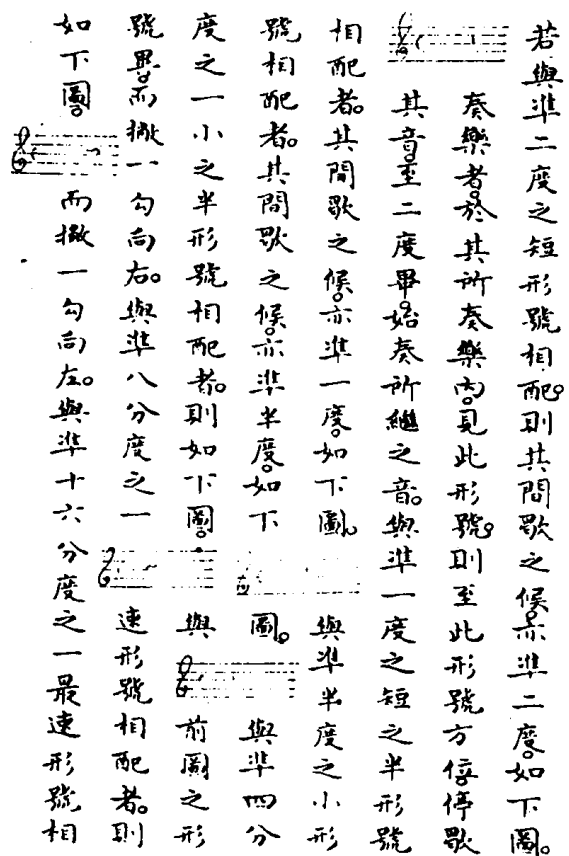 若與準二度之短形號相配則其間歇之候亦準二度如下圖
奏樂者於其所奏樂內見此形號則至此形號方停歇
其音至二度畢始奏所繼之音與準一度之短之半形號
相配者其間歇之候亦準一度如下圖 與準半度之小形
號相配者其間歇之候亦準半度如下圖 與準四分
度之一小之半形號相配者則如下圖 與前圖之形
號異而撇一勾向右與準八分度之一速形號相配者則
如下圖 而撇一勾向左與準十六分度之一最速形號相